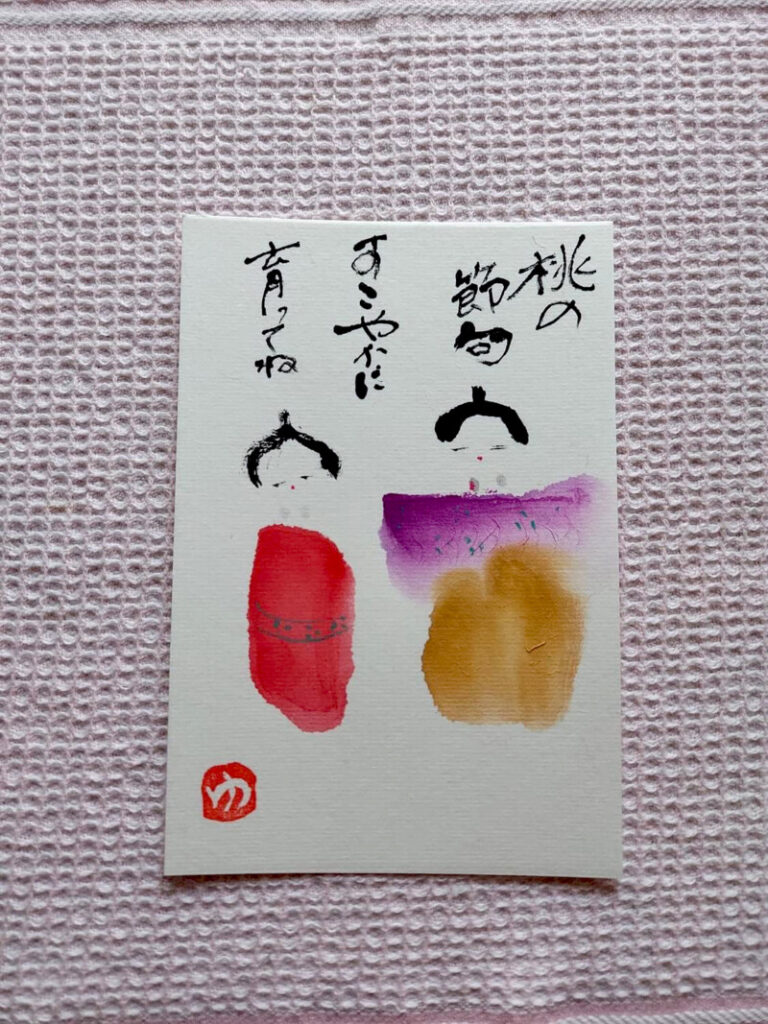 桃の
節句
すこやかに
育ってね
ゆ